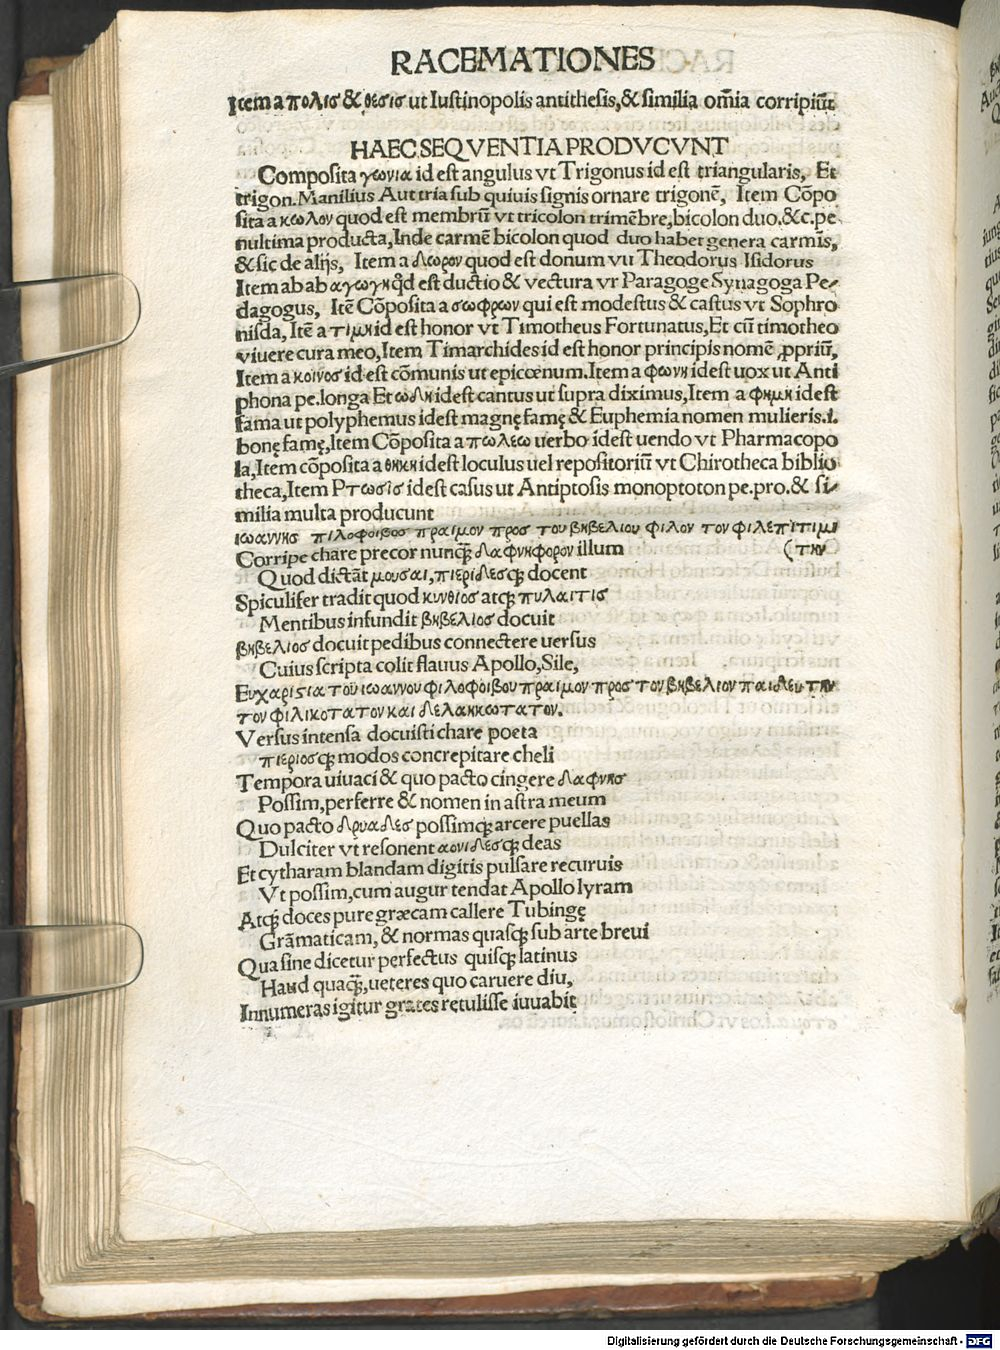 RACEMATIONES
Item a πολισ & θεσισ ut Iustinopolis antithesis,& similia om̃ia corripiũt
HAEC.SEQVENTIA PRODVCVNT
Composita γωνια id est angulus vt Trigonus id est triangularis, Et
trigon. Manilius Aut tria sub quiuis signis ornare trigonẽ, Item Cõpo
sita a κωλον quod est membrũ vt tricolon trimẽbre, bicolon duo.&c.pe
nultima producta, Inde carmẽ bicolon quod duo habet genera carmĩs,
& sic de alijs, Item a δωρον quod est donum vu Theodorus Isidorus
Item ab ab αγωγη qđ est ductio & vectura vr Paragoge Synagoga Pe-
dagogus, Itẽ Cõposita a σωφρων qui est modestus & castus vt Sophro
nisda, Itẽ a τιμη id est honor vt Timotheus Fortunatus, Et cũ timotheo
viuere cura meo, Item Timarchides id est honor principis nomẽ ꝓpriũ,
Item a κοινοσ id est cõmunis ut epicœnum. Item a φωνη idest uox ut Anti
phona pe.longa Et ωδη idest cantus ut supra diximus, Item a φημη idest
fama ut polyphemus idest magnę famę & Euphemia nomen mulieris.i.
bonę famę, Item Cõposita a πωλεω uerbo idest uendo vt Pharmacopo
la, Item cõposita a θηκη idest loculus uel repositoriũ vt Chirotheca biblio
theca, Item Pτωσισ idest casus ut Antiptosis monoptoton pe.pro.& si-
milia multa producunt
ιωαννησ πιλοφοιβοσ πραιμον προσ του βηβελιου φιλον τον φιλεπιτιμι
Corripe chare precor nunꝙ̃ δαφνηφορον illum (την
Quod dictãt μουσαι, πιεριδεσꝙ docent
Spiculifer tradit quod κυνθιοσ atꝙ πυλαιτισ
Mentibus infundit βηβελιοσ docuit
βηβελιοσ docuit pedibus connectere uersus
Cuius scripta colit flauus Apollo, Sile,
Ευχαριςια του ιωαννου φιλοφοιβου πραιμον προσ τον βηβελιον παιδευτην
τον φιλικοτατον και δελακκωτατον.
Versus intensa docuisti chare poeta
πιεριοσꝙ modos concrepitare cheli
Tempora uiuaci & quo pacto cingere δαφνησ
Possim, perferre & nomen in astra meum
Quo pacto δρυαδεσ possimꝙ arcere puellas
Dulciter vt resonent αονιδεσꝙ deas
Et cytharam blandam digitis pulsare recuruis
Vt possim, cum augur tendat Apollo lyram
Atꝙ doces pure græcam callere Tubingę
Grãmaticam, & normas quasꝙ sub arte breui
Qua sine dicetur perfectus quisꝙ latinus
Haud quaꝙ̃, ueteres quo caruere diu,
Innumeras igitur grates retulisse iuuabit
Digitalisierung gefördert durch die Deutsche Forschungsgemeinschaft - DFG